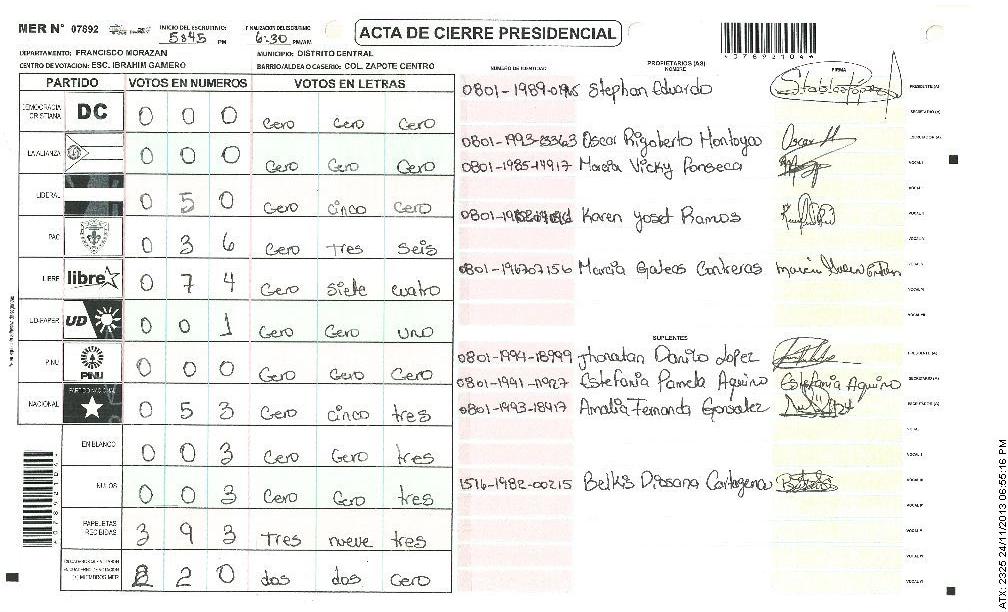 MER N° 07892 INICIO DEL ESCRUTINIO: 5:45 PM FINALIZACION DEL ESCRUTINIO 6:30 PM/AM
ACTA DE CIERRE PRESIDENCIAL
DEPARTAMENTO: FRANCISCO MORAZAN MUNICIPIO: DISTRITO CENTRAL
CENTRO DE VOTACION: ESC. IBRAHIM GAMERO BARRIO/ALDEA O CASERIO: COL. ZAPOTE CENTRO
PARTIDO VOTOS EN NUMEROS VOTOS EN LETRAS
DEMOCRACIA CRISTIANA DC 0 0 0 Cero Cero Cero
LA ALIANZA 0 0 0 Cero Cero Cero
LIBERAL 0 5 0 Cero cinco Cero
PAC 0 3 6 Cero Tres Seis
LIBRE libre 0 7 4 Cero Siete cuatro
UD-FAPER UD 0 0 1 Cero Cero uno
PINU PINU 0 0 0 Cero Cero Cero
NACIONAL PARTIDO NACIONAL 0 5 3 Cero cinco tres
EN BLANCO 0 0 3 Cero Cero tres
NULOS 0 0 3 Cero Cero tres
PAPELETAS RECIBIDAS 3 9 3 Tres nueve tres
2 2 0 dos dos Cero
NUMERO DE IDENTIDAD PROPIETARIOS (AS) NOMBRE FIRMA
*07892104*
Stephan Eduardo PRESIDENTE (A)
SECRETARIO (A)
Oscar Rigoberto Montoya Oscar M ESCRUTADOR (A)
0801-1985-14917 Marcia Vicky Fonseca VOCAL I
Karen Yoset Ramos
0801-196707156 Marcia Gateas Contreras
SUPLENTES
0801-1994-18999 Jhonatan Danilo Lopez PRESIDENTE (A)
0801-1991-11927 Estefania Pamela Aquino Estefania Aquino SECRETARIO (A)
0801-1993-18417 Amalia Fernanda Gonzalez ESCRUTADOR (A)
1516-1982-00215 Belkis Diosana Cartagena
ATX: 2325 24/11/2013 06:55:16 PM